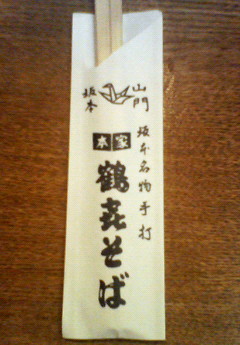 山門
坂本
坂本名物手打
本家
鶴㐂そば